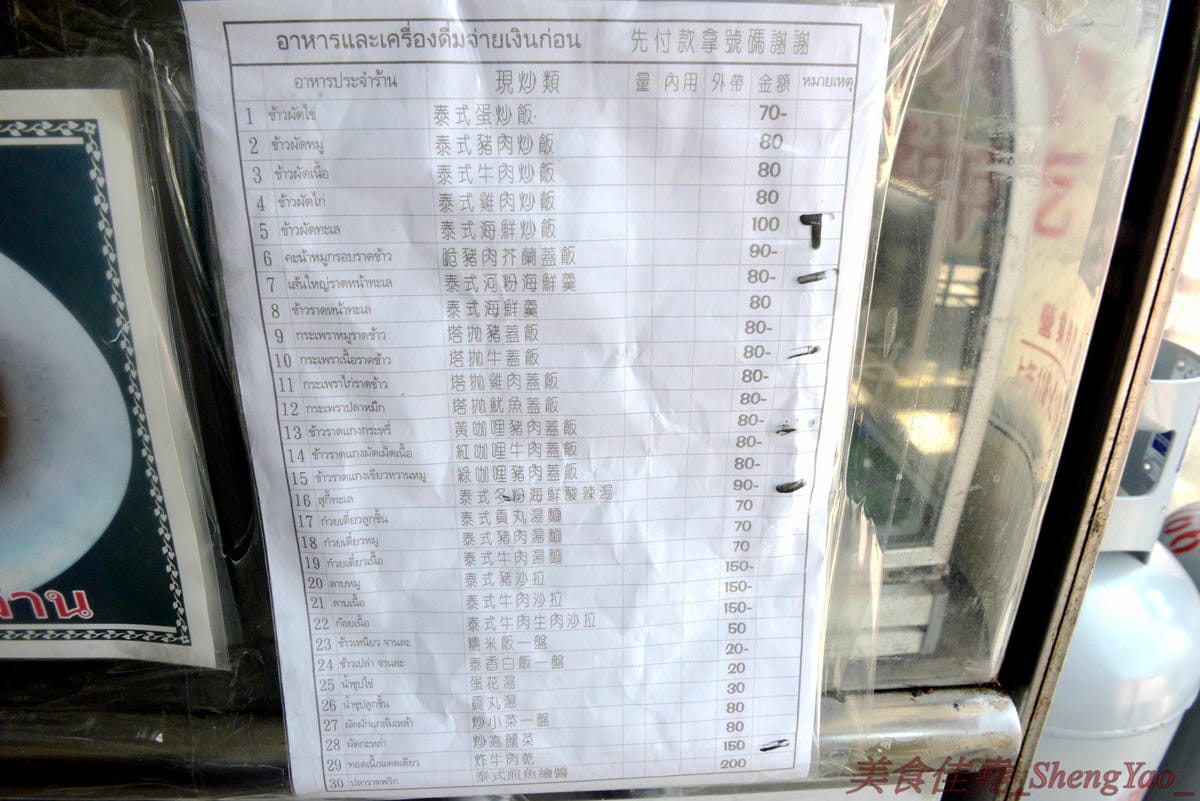 อาหารและเครื่องดื่มจ่ายเงินก่อน 先付款拿號碼謝謝
อาหารประจำร้าน 現炒類 量 內用 外帶 金額 หมายเหตุ
1 ข้าวผัดไข่ 泰式蛋炒飯 70-
2 ข้าวผัดหมู 泰式豬肉炒飯 80
3 ข้าวผัดเนื้อ 泰式牛肉炒飯 80
4 ข้าวผัดไก่ 泰式雞肉炒飯 80
5 ข้าวผัดทะเล 泰式海鮮炒飯 100
6 คะน้าหมูกรอบราดข้าว 脆豬肉芥蘭蓋飯 90-
7 เส้นใหญ่ราดหน้าทะเล 泰式河粉海鮮羹 80-
8 ข้าวราดหน้าทะเล 泰式海鮮羹 80
9 กระเพราหมูราดข้าว 塔拋豬蓋飯 80-
10 กระเพราเนื้อราดข้าว 塔拋牛蓋飯 80-
11 กระเพราไก่ราดข้าว 塔拋雞肉蓋飯 80-
12 กระเพราปลาหมึก 塔拋魷魚蓋飯 80-
13 ข้าวราดแกงกระหรี่ 黃咖哩豬肉蓋飯 80-
14 ข้าวราดแกงผัดเผ็ดเนื้อ 紅咖哩牛肉蓋飯 80-
15 ข้าวราดแกงเขียวหวานหมู 綠咖哩豬肉蓋飯 80-
16 สุกี้ทะเล 泰式冬粉海鮮酸辣湯 90-
17 ก๋วยเตี๋ยวลูกชิ้น 泰式貢丸湯麵 70
18 ก๋วยเตี๋ยวหมู 泰式豬肉湯麵 70
19 ก๋วยเตี๋ยวเนื้อ 泰式牛肉湯麵 70
20 ลาบหมู 泰式豬沙拉 150-
21 ลาบเนื้อ 泰式牛肉沙拉 150-
22 ก้อยเนื้อ 泰式牛肉生肉沙拉 150-
23 ข้าวเหนียว จานละ 糯米飯一盤 50
24 ข้าวเปล่า จานละ 泰香白飯一盤 20-
25 น้ำซุปไข่ 蛋花湯 20
26 น้ำซุปลูกชิ้น 貢丸湯 30
27 ผัดผักแกล้มเหล้า 炒小菜一盤 80
28 ผัดกะหล่ำ 炒高麗菜 80
29 ทอดเนื้อแดดเดียว 炸牛肉乾 150
30 ปลาราดพริก 泰式煎魚繪醬 200
าน
美食佳堯_ShengYao_